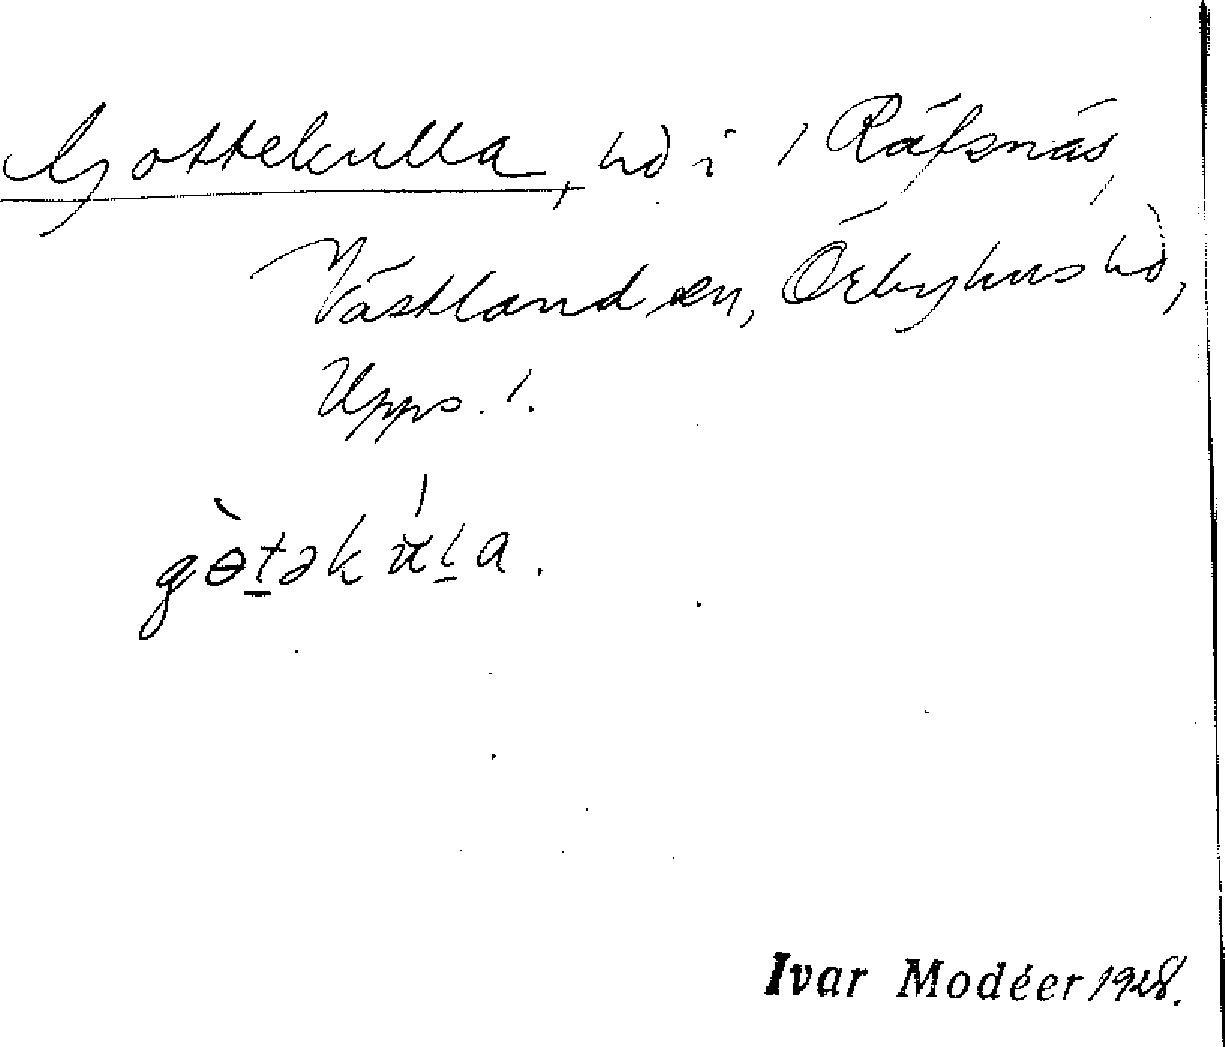 Gottekulla, hd i / Räfsnäs,
Västland sn, Örbyhus hd,
Upps. l.
gɵ̀tək ʉ́la.
Ivar Modéer 1928.